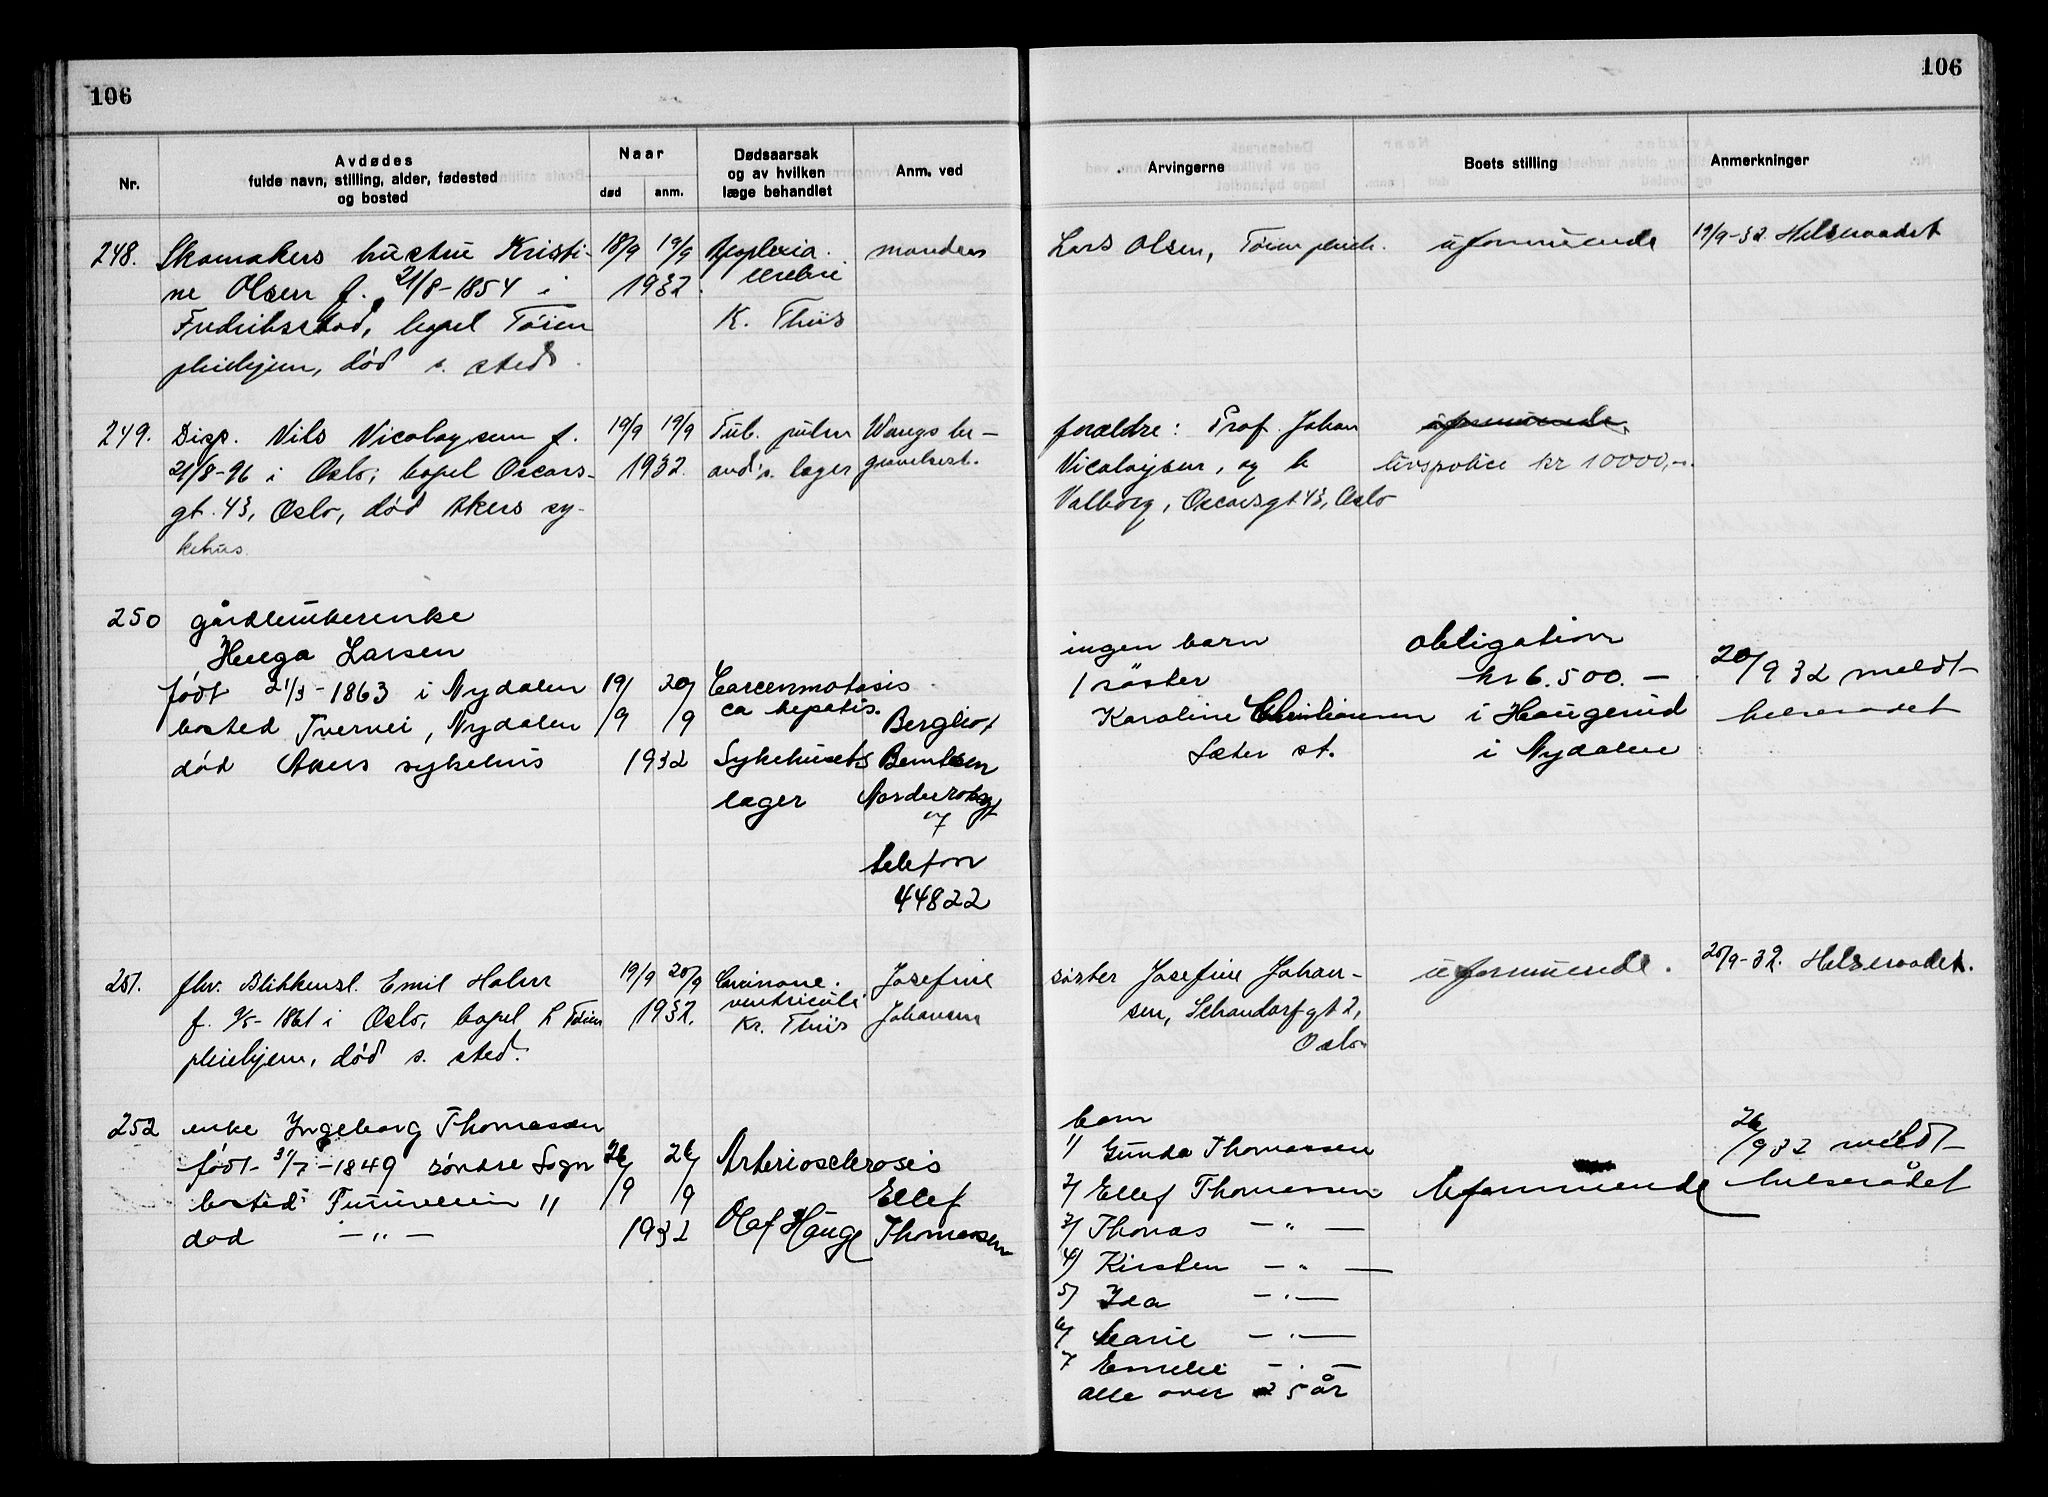 106
106
Nr.
Avdødes
fulde navn, stilling, alder, fødested
og bosted
Naar
død
anm.
Dødsaarsak
og av hvilken
læge behandlet
Anm. ved
Arvingerne
Boets stilling
Anmerkninger
248. Skomakers hustru Kristi-
ne Olsen f. 21/8-1854 i
Fredrikstad, bopel Tøien
pleiehjem, død s. sted.
18/9 19/9
1932.
Apoplexia
cerebri
K. Thiis
manden
Lars Olsen, Tøien pleieh.
uformuende
19/9-32. Helseraadet
249. Disp. Nils Nicolaysen f.
21/8-96 i Oslo, bopel Oscars-
gt. 43, Oslo, død Akers sy-
kehus.
19/9 19/9
1932.
Tub. pulm
and's. læger
Wangs be-
gravelsesb.
forældre: Prof. Johan
Nicolaysen, og h
Valborg, Oscarsgt 43, Oslo
uformuende.
livspolice kr 10000,-.
250 gårdbrukerenke
Helga Larsen
født 21/3-1863 i Nydalen
bosted Tvervei, Nydalen
død Akers sykehus
19/9 20/9
1932
Carcenmatosis
ca hepatis.
Sykehusets
læger
Bergliot
Berntsen
7
telefon
44822
ingen barn
1 søster
Karoline Christiansen
Sæter st.
obligation
kr 6.500.-
i Haugerud
i Nydalen
20/9 32 meldt
helseraadet
251. fhv. Blikkensl. Emil Holm
f. 9/5-1861 i Oslo, bopel Tøien
pleiehjem, død s. sted.
19/9 20/9
1932.
ventriculi
Kr. Thiis
Josefine
Johansen
søster Josefine Johan-
sen, Schandorfgt 2,
Oslo
uformuende.
20/9-32. Helseraadet.
252 enke Ingeborg Thomassen
født 31/7-1849 søndre Sogn
bosted Furuveien 11
død -"-
26/9 26/9
1932
Arteriosclerosis
Olaf Hauge
Ellef
Thomassen
barn
1/ Gunda Thomassen
2/ Ellef Thomassen
3/ Thomas -"-
4/ Kirsten -"-
5/ Ida -"-
6/ Marie -"-
7 Emelie -"-
alle over 25 år
Uformuende
26/9 32 meldt
helserådet